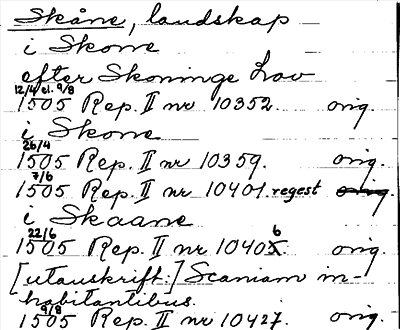 Skåne, landskap
i Skone
efter Skoninge Lov
12/4 el. 9/8
1505 Rep. II nr 10352. orig.
i Skone
26/4
1505 Rep. II nr 10359. orig.
7/6
1505 Rep. II nr 10401. regest orig.
i Skaane
22/6
1505 Rep. II nr 10406. orig.
[utanskrift:] Scaniam in-
habitantibus.
9/8
1505 Rep. II nr 10427. orig.